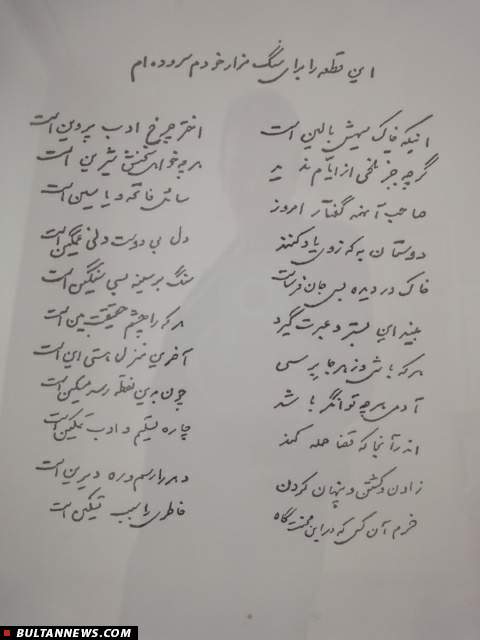 این قطعه را برای سنگ مزار خودم سروده ام
اینکه خاک سیهش بالین است اختر چرخ ادب پروین است
گرچه جز تلخی از ایام ندید هرچه خواهی سخنش شیرین است
صاحب آنهمه گفتار امروز سائل فاتحه و یاسین است
دوستان به که زوی یاد کنند دل بی دوست دلی غمگین است
خاک در دیده بسی جان فرساست سنگ بر سینه بسی سنگین است
بیند این بستر و عبرت گیرد هرکه را چشم حقیقت بین است
هرکه باشی وز هرجا برسی آخرین منزل هستی این است
آدمی هرچه توانگر باشد چون بدین نقطه رسد مسکین است
اندر آنجا که قضا حمله کند چاره تسلیم و ادب تمکین است
زادن و کشتن و پنهان کردن دهر را رسم و ره دیرین است
خرم آن کس که در این محنت گاه خاطری را سبب تسکین است
BULTANNEWS.COM